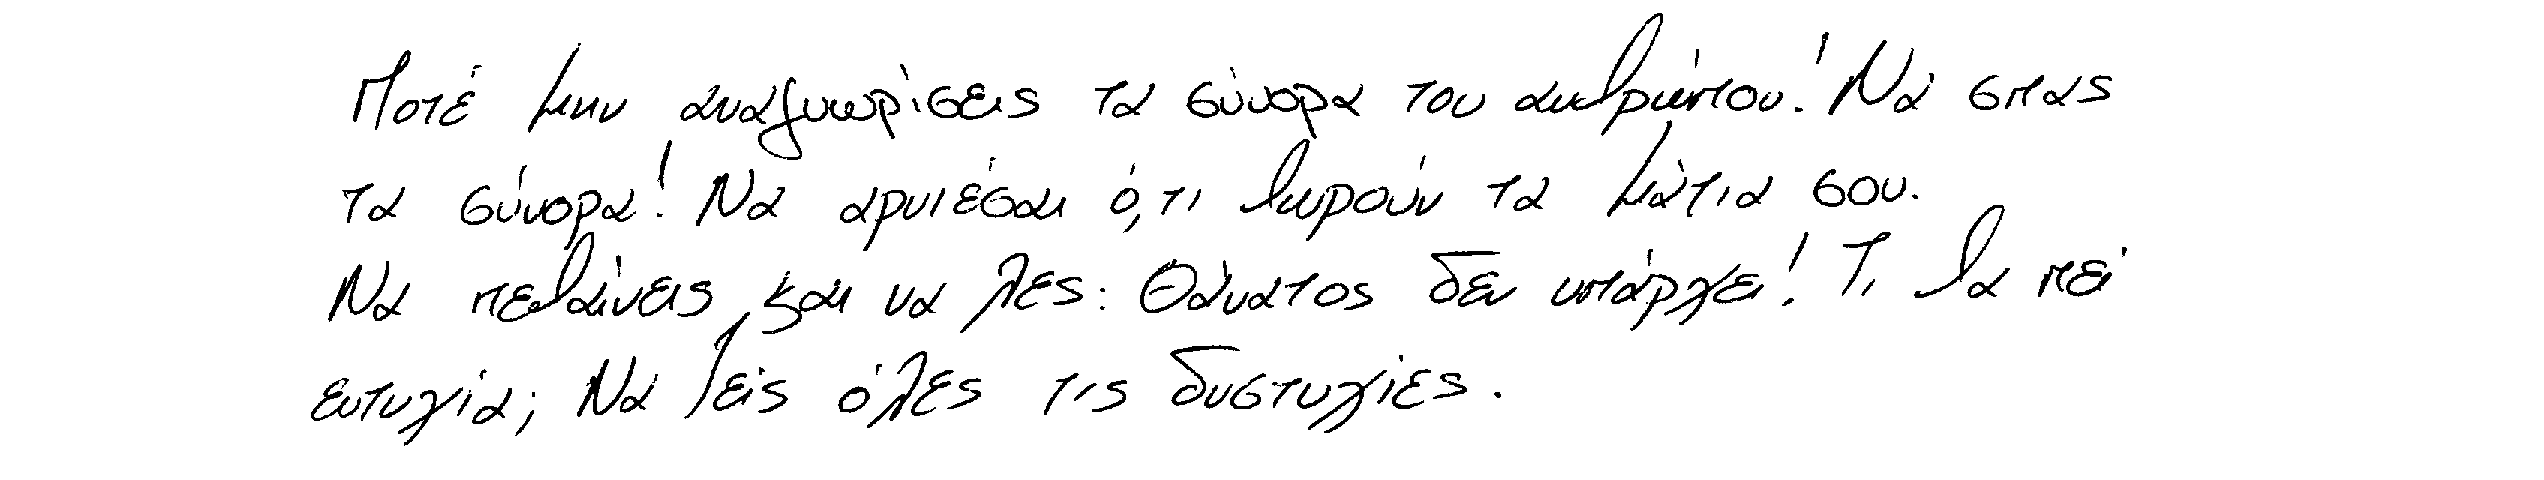 Ποτέ μην αναγνωρίσεις τα σύνορα του ανθρώπου! Νά σπας
τα σύνορα! Να αρνιέσαι ό,τι θωρούν τα μάτια σου.
Να πεθαίνεις και να λες: Θάνατος δεν υπάρχει! Τι θα πεί
ευτυχία; Νά ζείς όλες τις δυστυχίες.